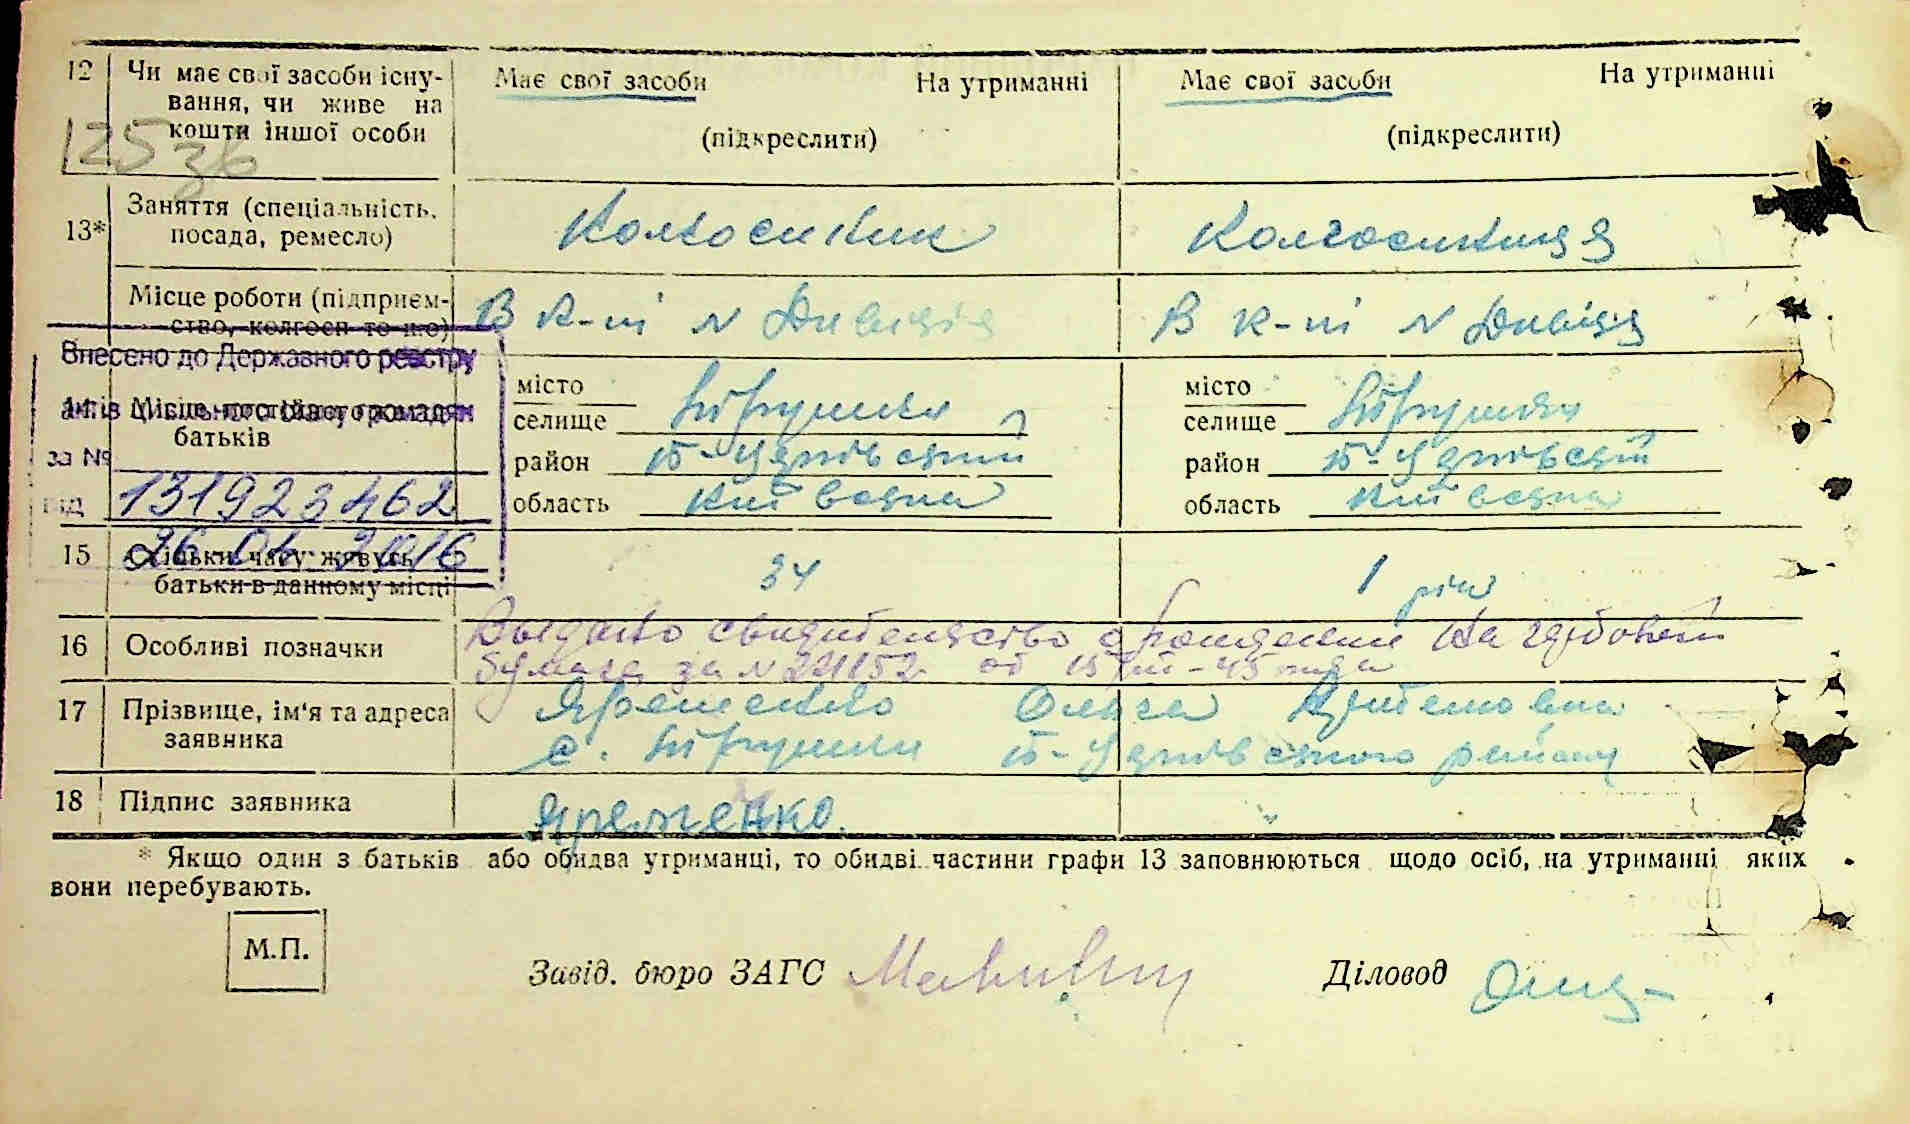 12 Чи має свої засоби існу- Має свої засоби На утриманні Має свої засоби На утриманні
вання, чи живе на
кошти іншої особи (підкреслити) (підкреслити)
125 зв
13* Заняття (спеціальність, посада, ремесло) Колхосникик Колгосникця
Місце роботи (підприєм- В к-ті N Дивізія В к-ті N Дивізія
ство, колгосп то що)
Внесено до Державного реєстру
актів цивільного стану громадян
за №
від 131923462
14 Місце постійного
батьків
місто місто
селище селище
район Б-Церківський район Б-Церківський
область Київська область Київська
15 Скільки часу живуть 34 1 рік
26.01.2016
батьки в данному місці
16 Особливі позначки Выдано свидетельство о рождении на гербовой
бумаге за N 221152 от 15/III-45 года
17 Прізвище, ім'я та адреса Яременко Ольга
заявника с. Б-Церківского району
18 Підпис заявника Яременко.
* Якщо один з батьків або обидва утриманці, то обидві частини графи 13 заповнюються щодо осіб, на утриманні яких
вони перебувають.
М.П.
Завід. бюро ЗАГС Діловод